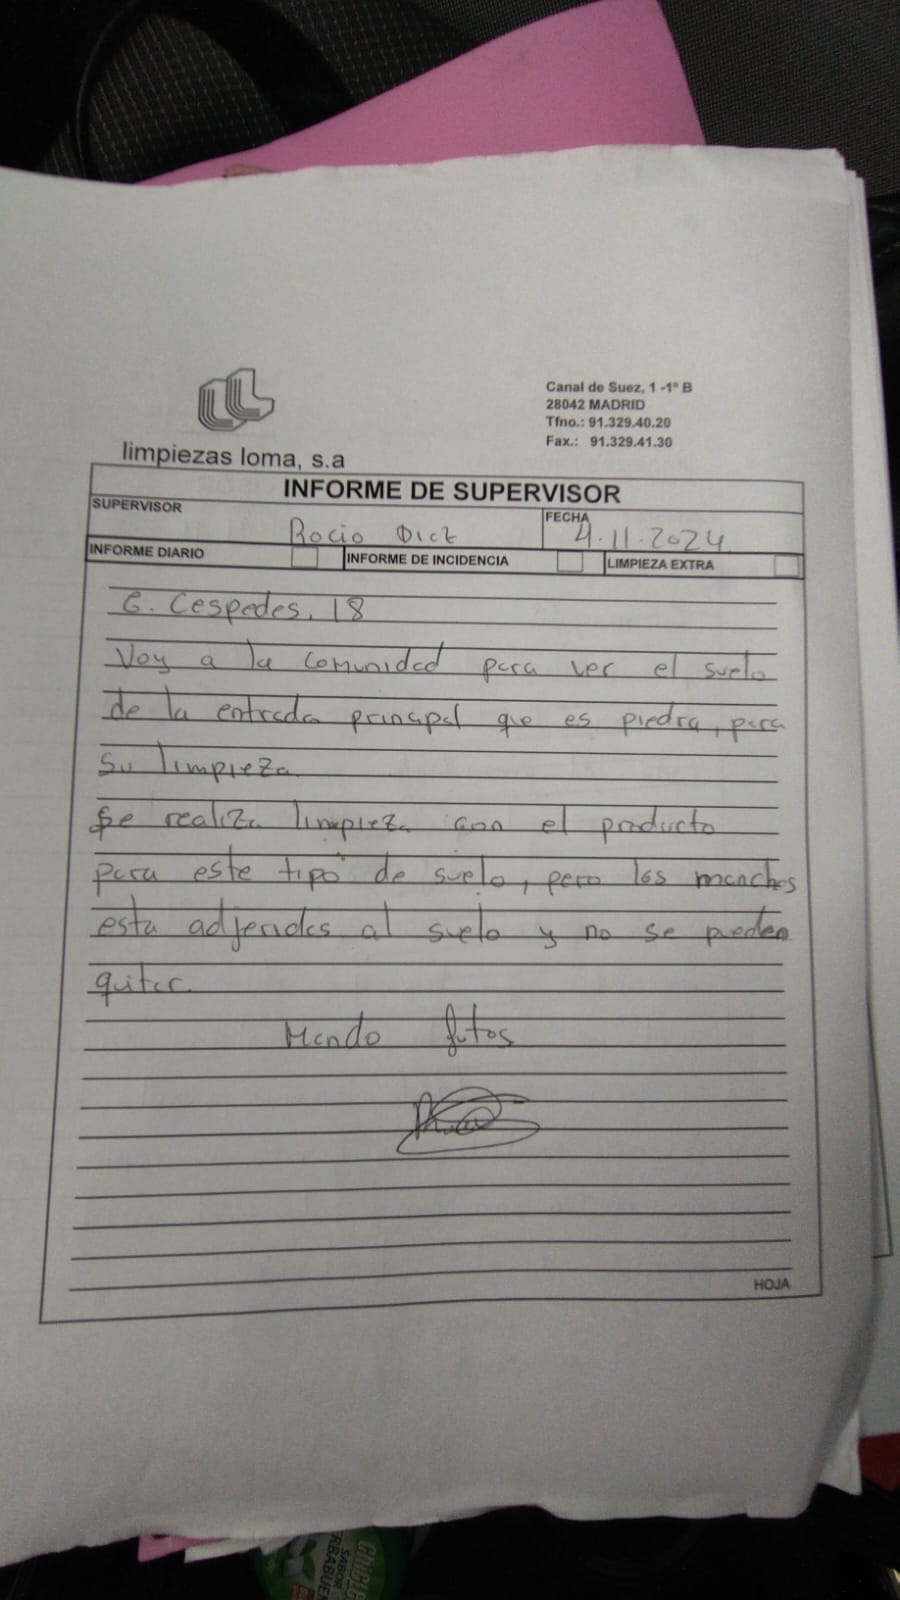 Canal de Suez, 1 -1º B
28042 MADRID
Tfno.: 91.329.40.20
Fax.: 91.329.41.30
limpiezas loma, s.a
INFORME DE SUPERVISOR
SUPERVISOR
Rocio Diez
FECHA
4.11.2024
INFORME DIARIO
INFORME DE INCIDENCIA
LIMPIEZA EXTRA
G. Cespedes, 18
Voy a la comunidad para ver el suelo
de la entrada principal que es piedra, para
su limpieza.
Se realiza limpieza con el producto
para este tipo de suelo, pero las manchas
esta adjeridas al suelo y no se pueden
quitar.
Mando fotos
HOJA